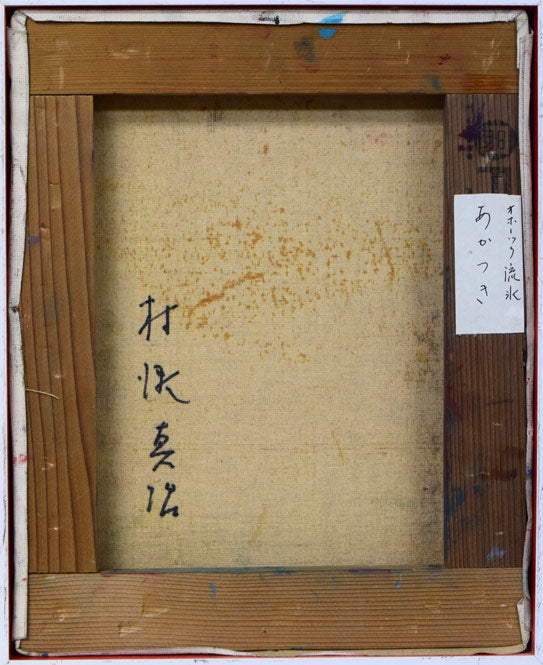 オホーツク 流氷
あかつき
村瀬真治